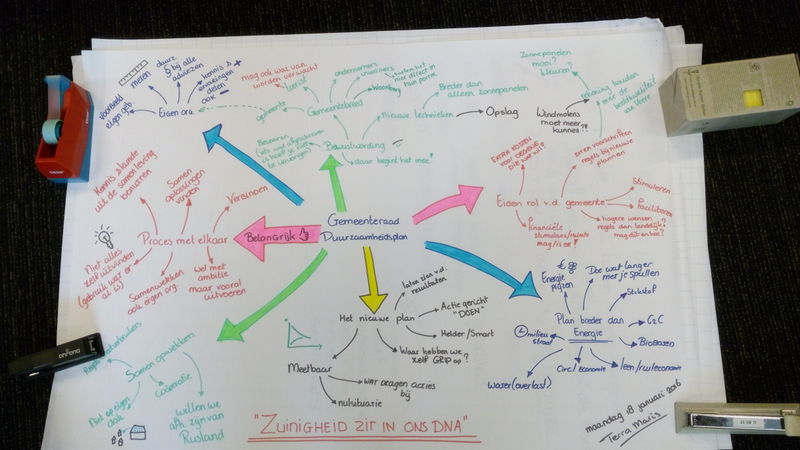 voorbeeld
eigen geb.
meten
duurz.
§ bij alle
adviezen
kennis &
ervaringen
delen
ook –
+
Eigen org.
mag ook wat van
worden verwacht
toerist
gemeente
ondernemers
inwoners
Woonburg
sluiten het
hier direct in
hun portm.
Gemeentebreed
Bewustwording
Besparen
daar begint het mee!
Nieuwe technieken
Breder dan
alleen zonnepanelen
Opslag
Zonnepanelen
mooi?
kleuren?
Windmolens
moet meer
kunnen?!
rekening houden
met de
beeldkwaliteit
van Veere
Kennis & kunde
uit de samenleving
benutten
Samen
oplossingen
vinden
Verbinden
Proces met elkaar
Belangrijk
Niet alles
zelf uitvinden
(gebruik wat er
al is)
Samenwerken
ook eigen org.
Wel met
ambitie
maar vooral
uitvoeren
Gemeenteraad
Duurzaamheidsplan
EXTRA KOSTEN
voor gebouwde
die wat wil?
extra voorschriften
regels bij nieuwe
plannen
Eigen rol v.d. gemeente
Stimuleren
faciliteren
hogere wensen
regels dan landelijk?
mag dit en hoe?
financiële
stimulans/ruimte
mag/is er?
Het nieuwe plan
laten zien v.d.
resultaten
Actie gericht
"DOEN"
Helder/Smart
Waar hebben we
zelf GRIP op?
Meetbaar
wat dragen acties
bij
nulsituatie
Energie
prijzen
Doe wat langer
met je spullen
Stikstof
C2C
BioBased
leen/ruileconomie
Circ. economie
water (overlast)
milieu
straat
Plan breder dan
Energie
Samen opwekken
Coöperatie
Niet op eigen
dak
willen we
afh. zijn van
Rusland
"ZUINIGHEID ZIT IN ONS DNA"
maandag 18 januari 2016
Terra Maris